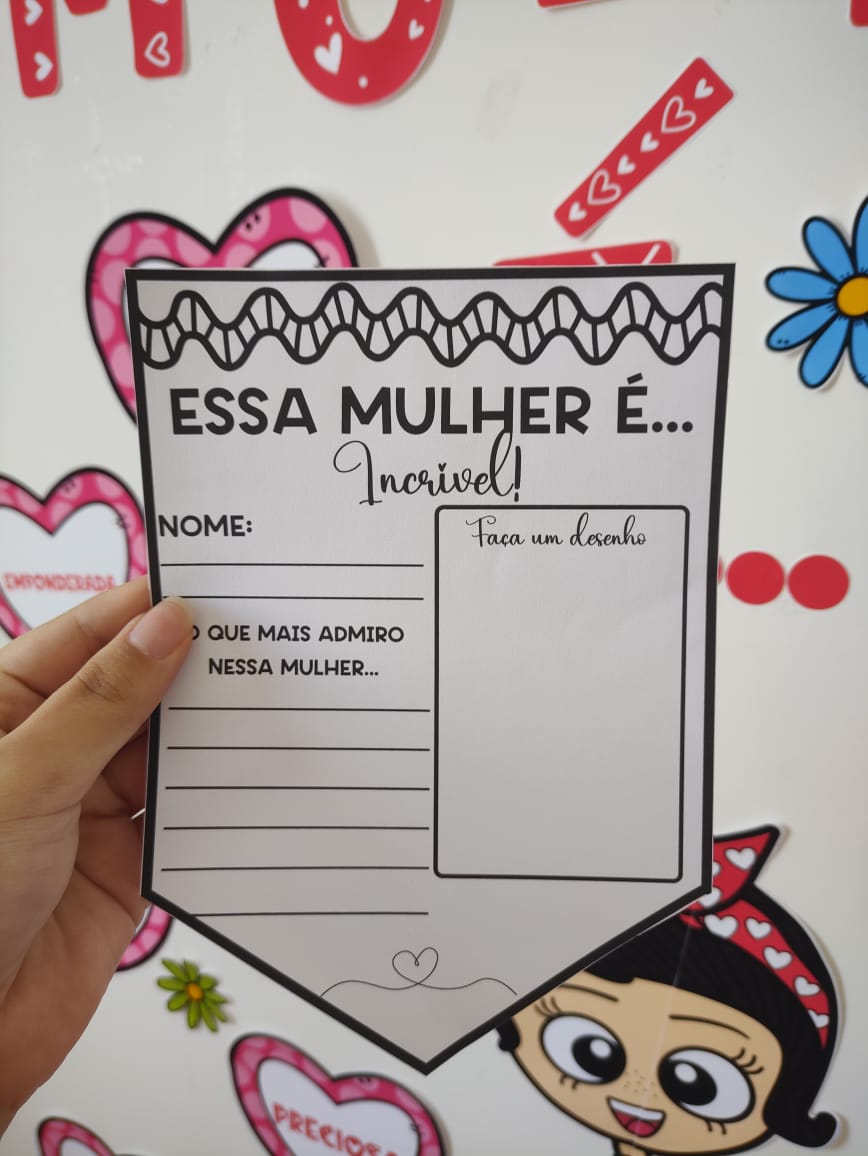 ESSA MULHER É...
Incrivel!
NOME:
Faça um desenho
O QUE MAIS ADMIRO
NESSA MULHER...
EMPONDERADA
PRECIOSA